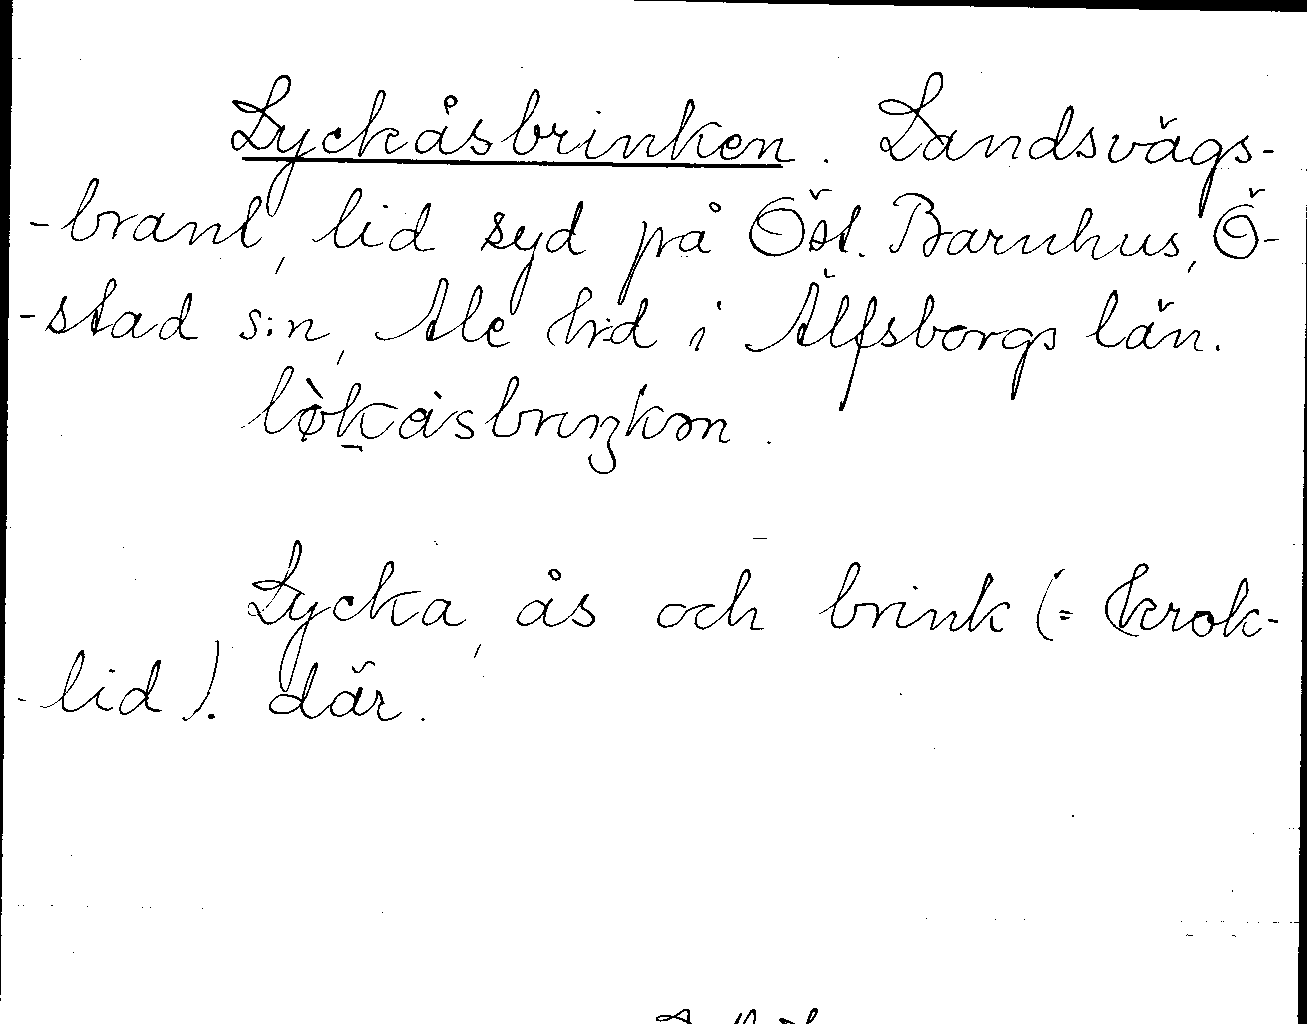 Lyckåsbrinken. Landsvägs-
-brant, lid syd på Öst. Barnhus, Ö-
-stad s:n, Ale h:d i Älfsborgs län.
Lycka, ås och brink (= krok-
-lid). där.